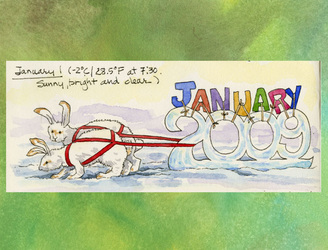 January 1 (-2°C/28.5°F at 7:30.
Sunny, bright and clear.)
JANUARY
2009